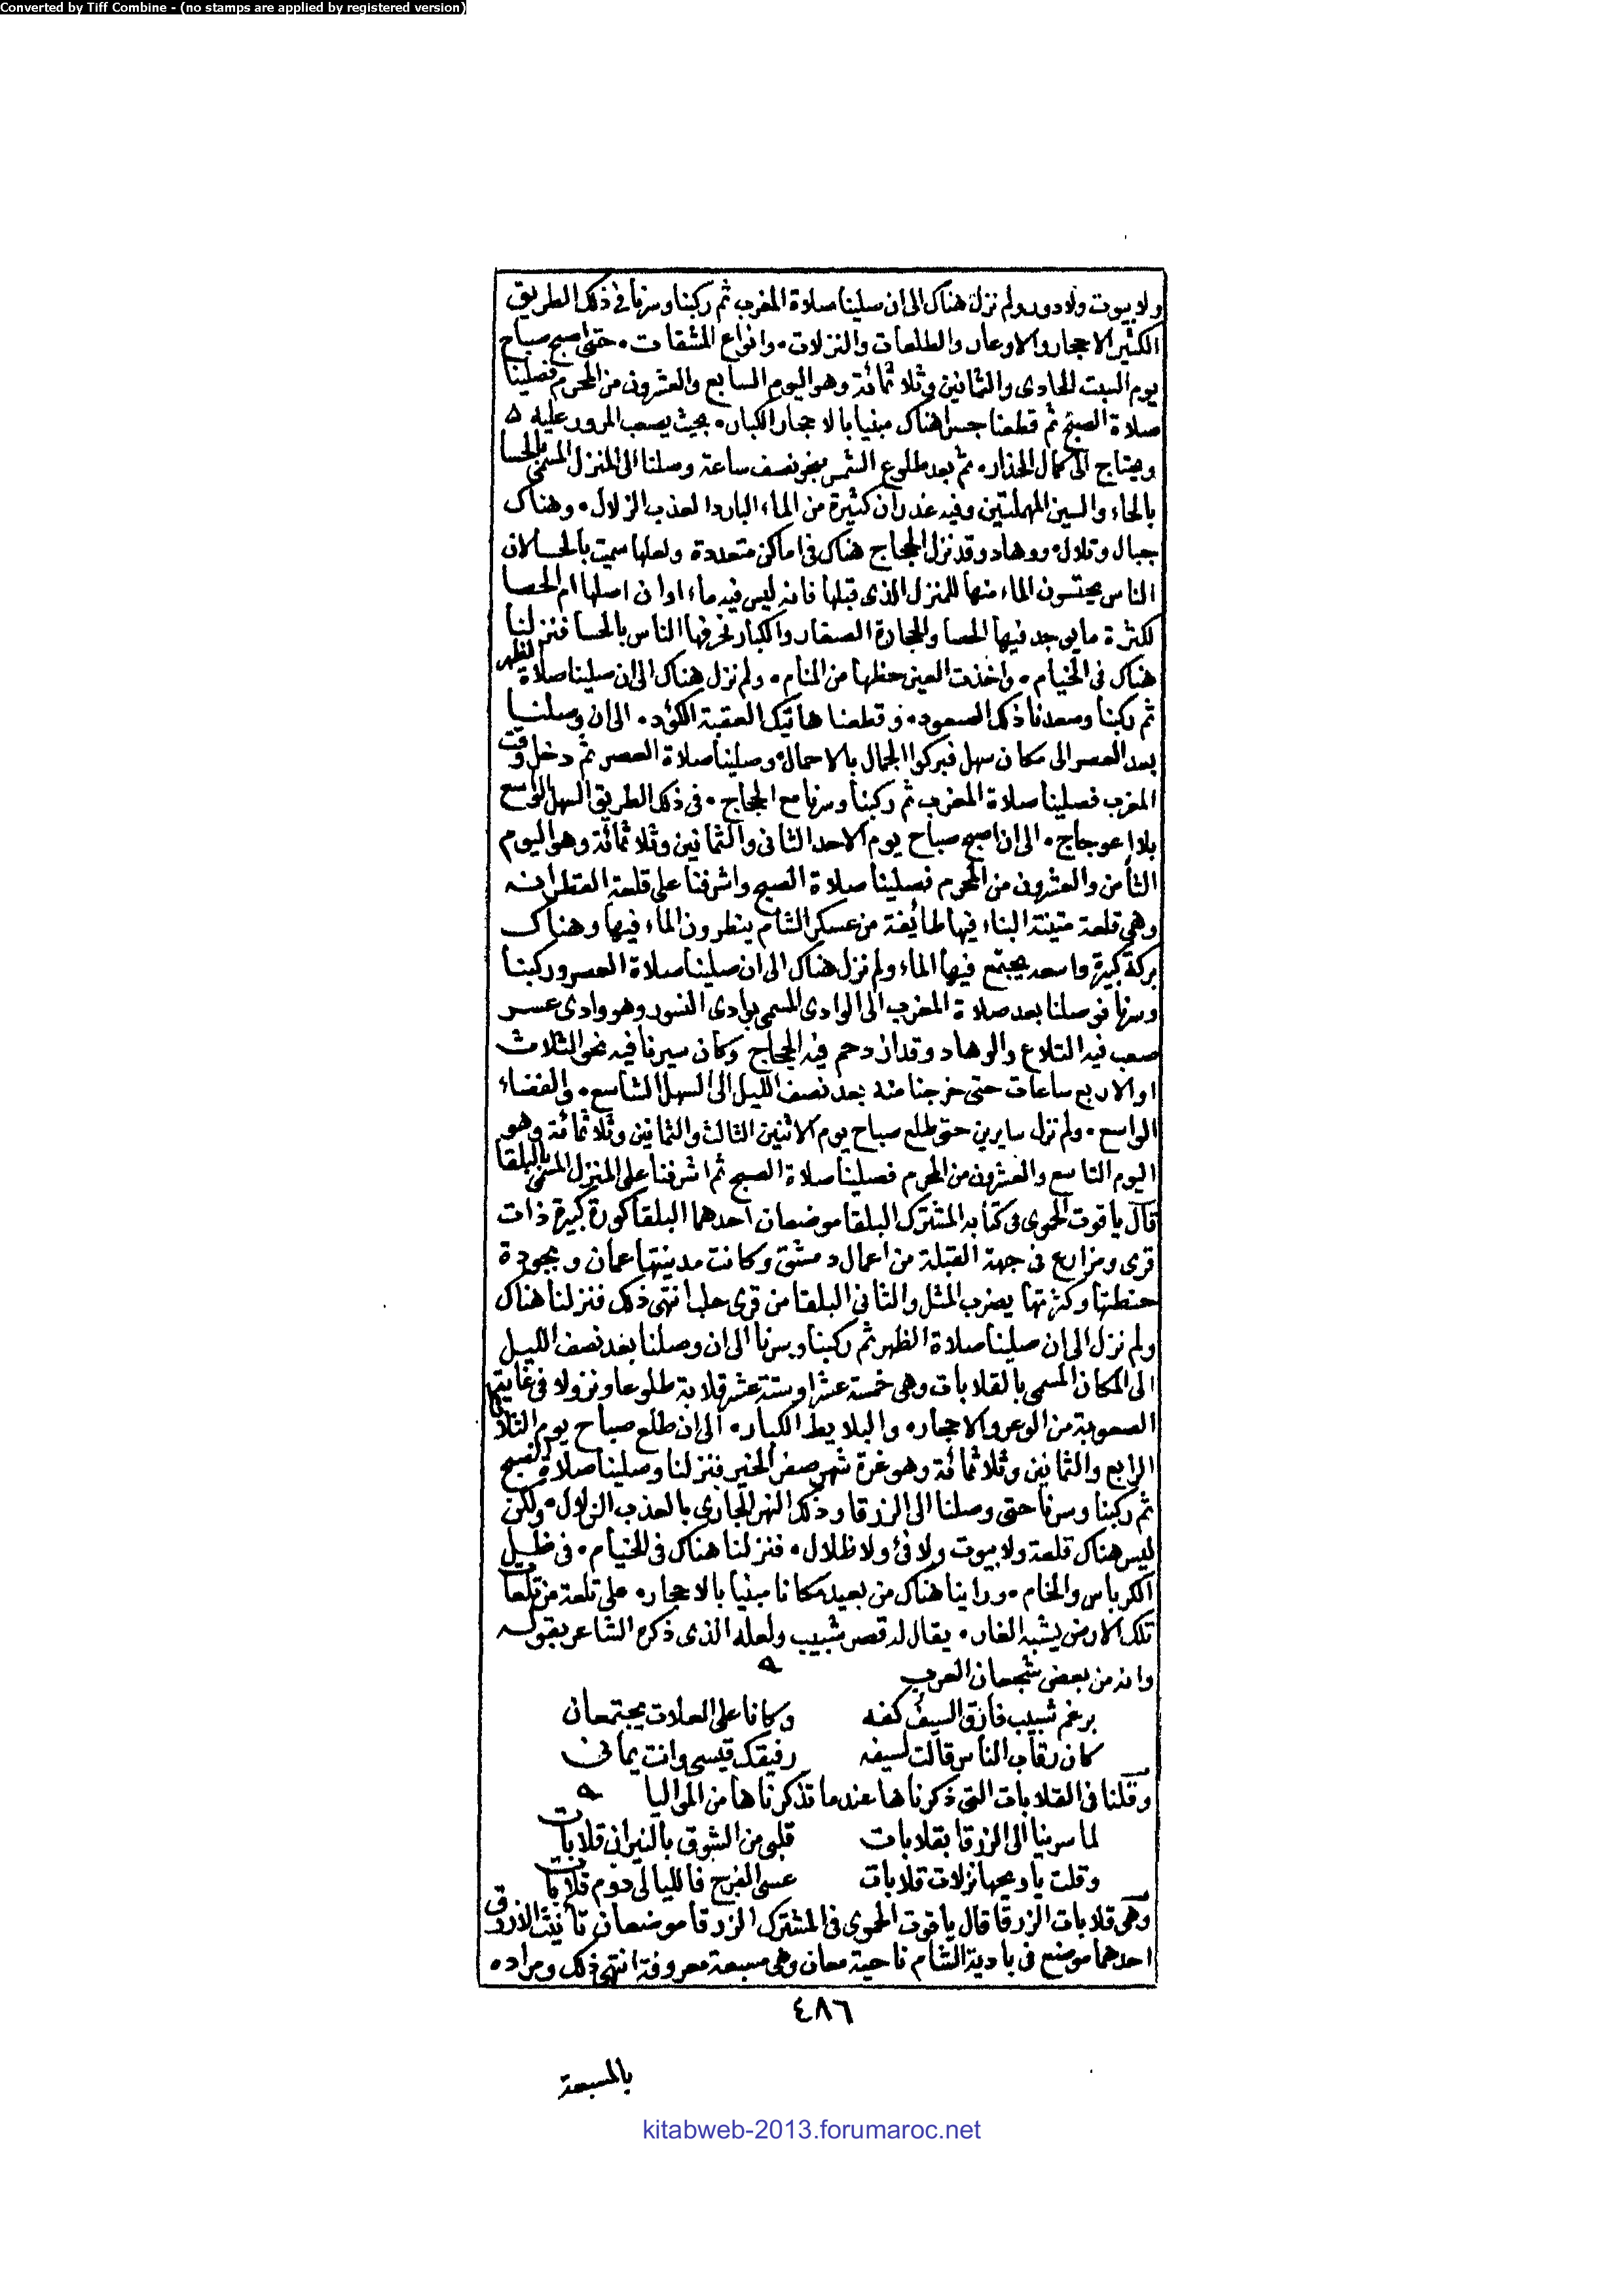 Converted by Tiff Combine - (no stamps are applied by registered version)
ولا بيوت ولا دور ولم نزل هناك الى ان صلينا صلاة المغرب ثم ركبنا وسرنا في ذلك الطريق
الكثير الاحجار والاوعار والطلعات والنزلات. وانواع المشقات. حتى اصبح صباح
يوم السبت الحادي والثمانين وثلاثمائة وهو اليوم السابع والعشرون من المحرم فصلينا
صلاة الصبح ثم قطعنا جسرا هناك مبنيا بالاحجار الكبار. بحيث يصعب المرور عليه ه
ويحتاج الى كمال الحذار. ثم بعد طلوع الشمس بنحو نصف ساعة وصلنا الى المنزل المسمى بالحسا
بالحاء والسين المهملتين وفيه غدران كثيرة من الماء البارد العذب الزلال. وهناك
جبال وتلال ووهاد وقد نزل الحجاج هناك في اماكن متعددة ولعلها سميت بالحسا لان
الناس يحتسون الماء منها للمنزل الذي قبلها فانه ليس فيه ماء او ان اصلها ام الحصا
لكثرة ما يوجد فيها الحصا والحجارة الصغار والكبار فحرفها الناس بالحسا فنزلنا
هناك في الخيام. واخذت العين حظها من المنام. ولم نزل هناك الى ان صلينا صلاة الظهر
ثم ركبنا وصعدنا ذلك الصعود. وقطعنا هاتيك العقبة الكؤد. الى ان وصلنا
بعد العصر الى مكان سهل فبركوا الجمال بالاحمال. وصلينا صلاة العصر ثم دخل وقت
المغرب فصلينا صلاة المغرب ثم ركبنا وسرنا مع الحجاج. في ذلك الطريق السهل الواسع
بلا اعوجاج. الى ان اصبح صباح يوم الاحد الثاني والثمانين وثلاثمائة وهو اليوم
الثامن والعشرون من المحرم فصلينا صلاة الصبح واشرفنا على قلعة القطرانه
وهي قلعة متينة البناء فيها طائفة من عسكر الشام ينطرون الماء فيها وهناك
بركة كبيرة واسعه يجتمع فيها الماء ولم نزل هناك الى ان صلينا صلاة العصر وركبنا
وسرنا فوصلنا بعد صلاة المغرب الى الوادي المسمى بوادي النسور وهو وادي عسر
صعب فيه التلاع والوهاد وقد ازدحم فيه الحجاج وكان سيرنا فيه نحو الثلاث
او الاربع ساعات حتى خرجنا منه بعد نصف الليل الى السهل الشاسع. والفضاء
الواسع. ولم نزل سايرين حتى طلع صباح يوم الاثنين الثالث والثمانين وثلاثمائة وهو
اليوم التاسع والعشرون من المحرم فصلينا صلاة الصبح ثم اشرفنا على المنزل المسمى بالبلقا
قال ياقوت الحموي في كتابه المشترك البلقا موضعان احدهما البلقا كورة كبيرة ذات
قرى ومزارع في جهة القبلة من اعمال دمشق وكانت مدينتها عمان وبجودة
حنطتها وكثرتها يضرب المثل والثاني البلقا من قرى حلب انتهى ذلك فنزلنا هناك
ولم نزل الى ان صلينا صلاة الظهر ثم ركبنا وسرنا الى ان وصلنا بعد نصف الليل
الى المكان المسمى بالقلابات وهي خمسة عشر او ستة عشر قلابة طلوعا ونزولا في غاية
الصعوبة من الوعر والاحجار. والبلايط الكبار. الى ان طلع صباح يوم الثلاثا
الرابع والثمانين وثلاثمائة وهو غرة شهر صفر الخير فنزلنا وصلينا صلاة الصبح
ثم ركبنا وسرنا حتى وصلنا الى الزرقا وذلك النهر الجاري بالعذب الزلال. ولكن
ليس هناك قلعة ولا بيوت ولا فئ ولا ظلال. فنزلنا هناك في الخيام. في ظل
الكرباس والخام. وراينا هناك من بعيد مكانا مبنيا بالاحجار. على تلعة من تلعات
تلك الارض يشبه الغار. يقال له قصر شبيب ولعله الذي ذكره الشاعر بقوله
وانه من بعض شجعان العرب
برغم شبيب فارق السيف كفه وكانا على العلات يجتمعان
كان رقاب الناس قالت لسيفه رفيقك قيسي وانت يماني
وقلنا في القلابات التي ذكرناها عندما تذكرناها من المواليا
لما سرينا الى الزرقا بقلابات قلبي من الشوق بالنيران قلابات
وقلت يا ويحها نزلات قلابات عسى الفرج فالليالي دوم قلابات
وهي قلابات الزرقا قال ياقوت الحموي في المشترك الزرقا موضعان تأنيث الازرق
احدهما موضع في بادية الشام ناحية معان وهي مسبعة معروفة انتهى ذلك ومراده
٤٨٦
بالمسبعة
kitabweb-2013.forumaroc.net